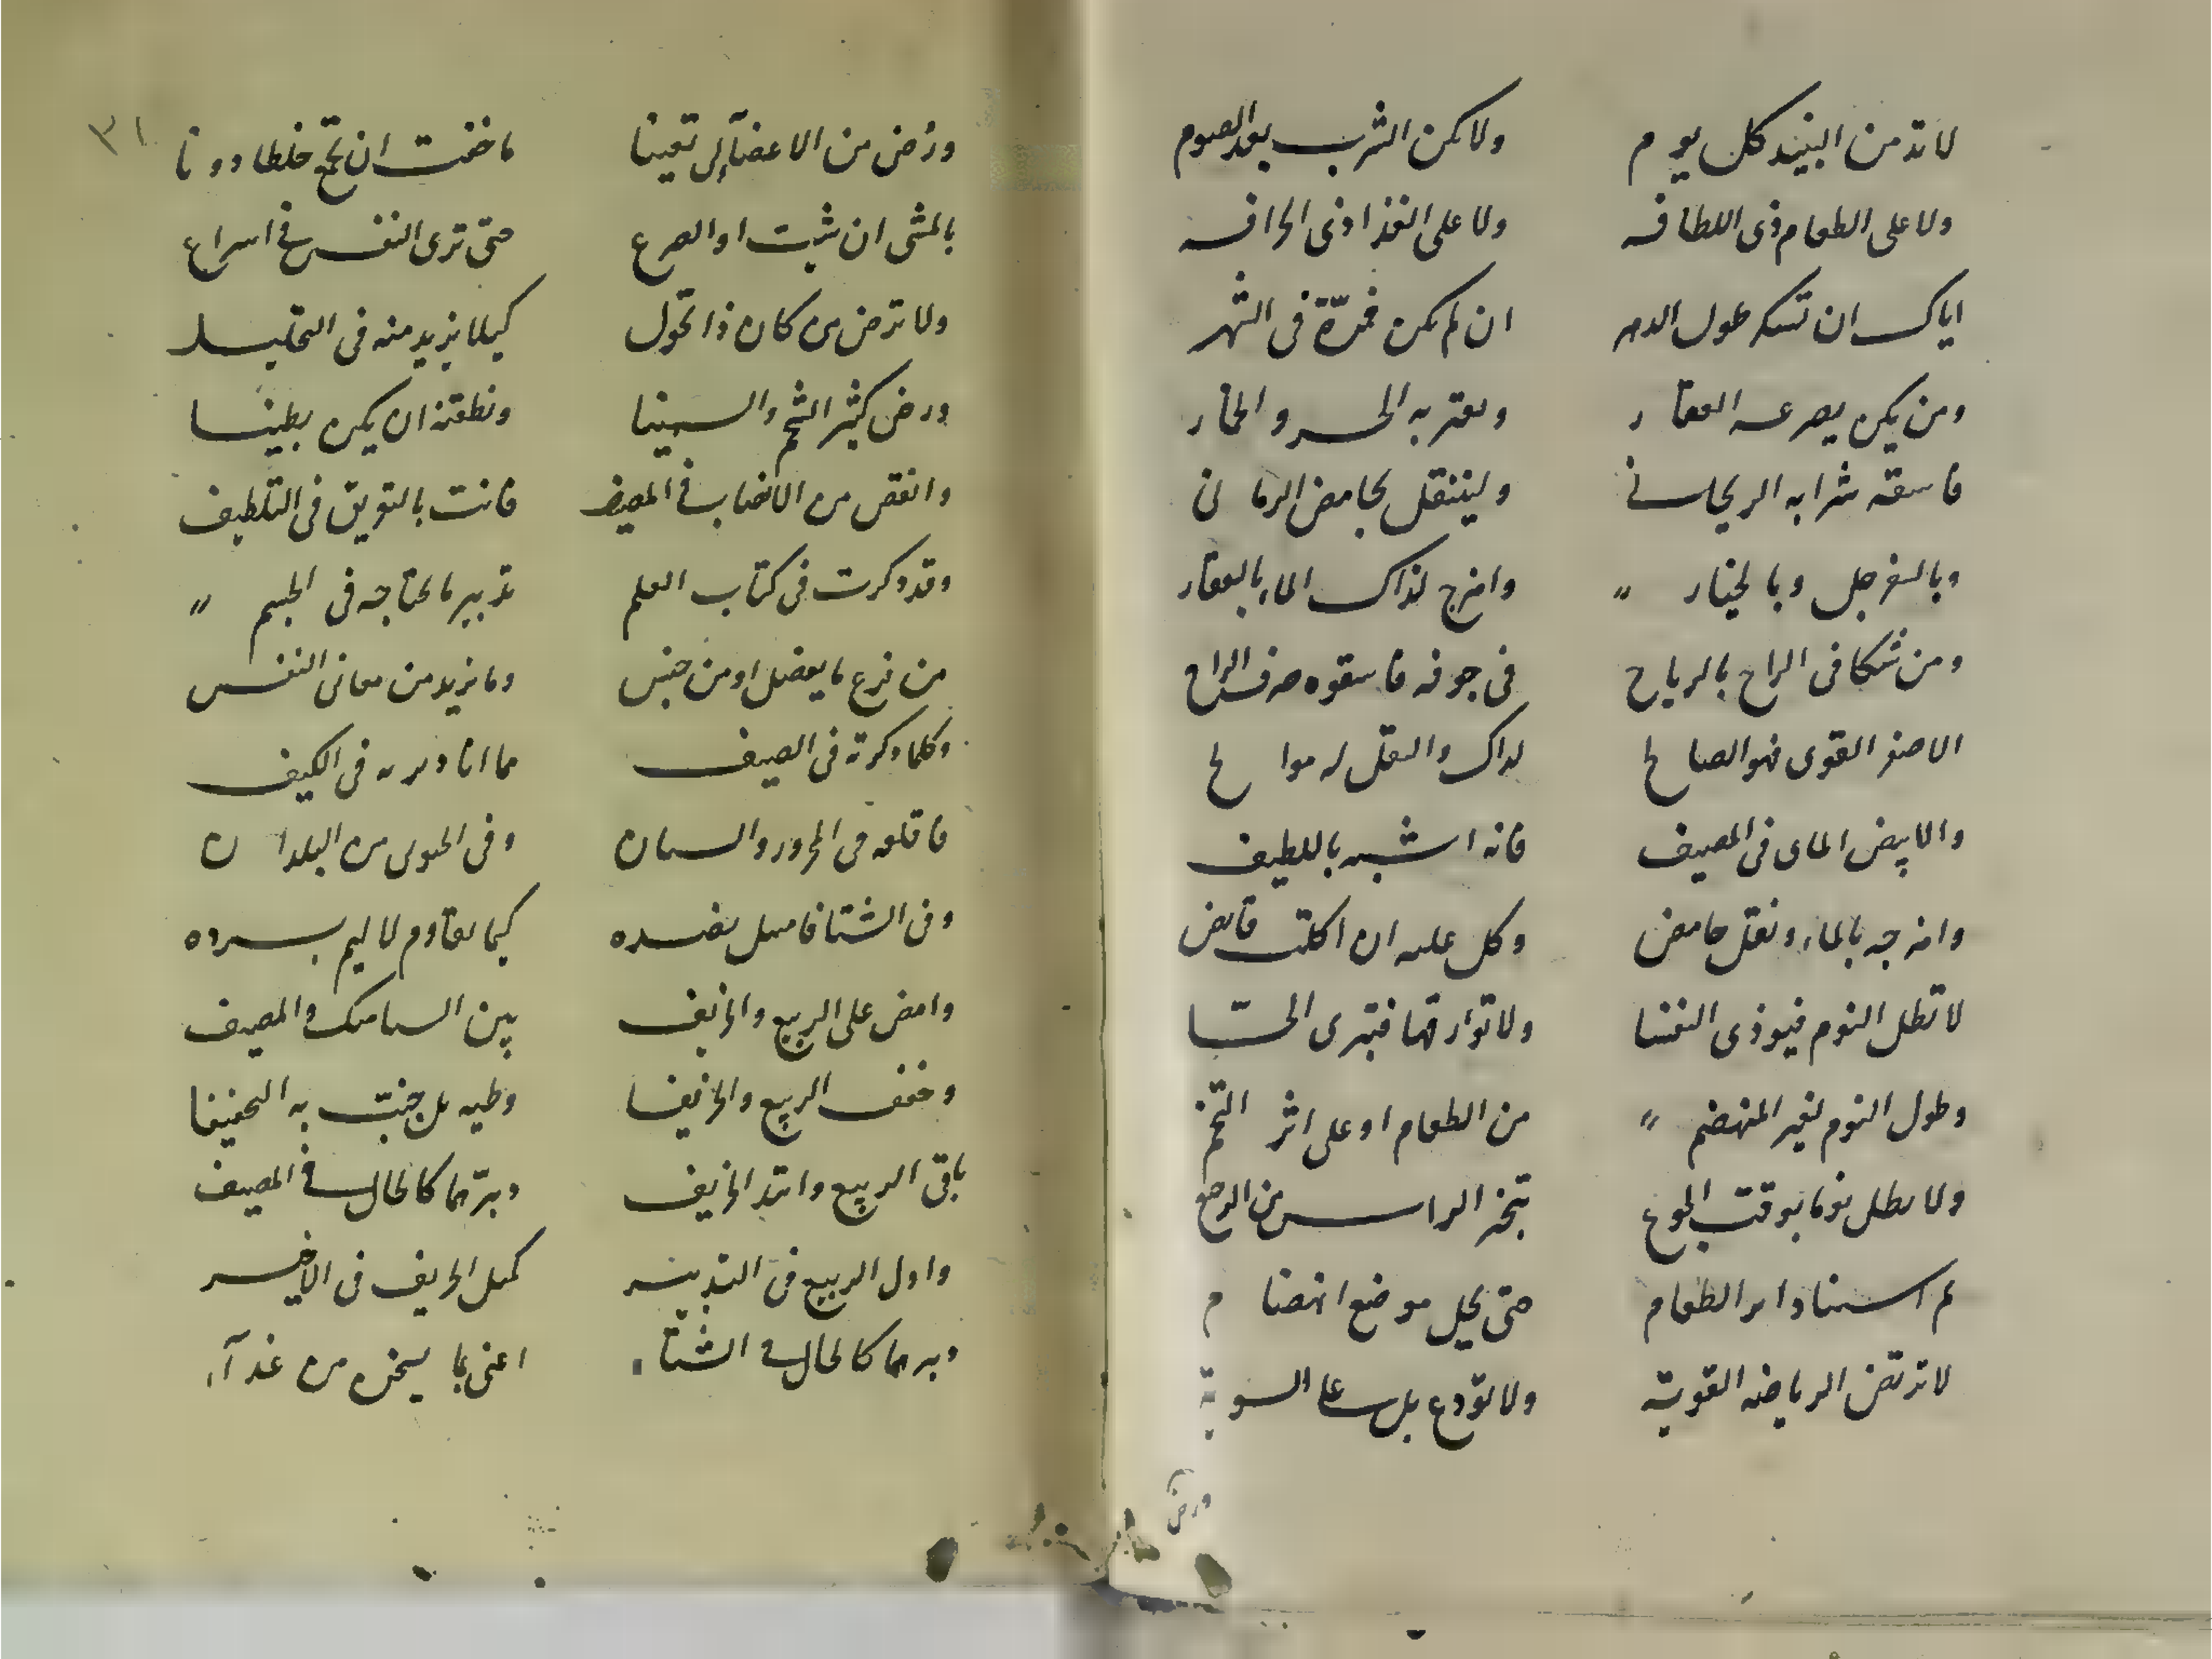 لا تدمن النبيذ كل يوم ولا يكن الشرب بعد الصوم
ولا على الطعام ذى اللطافه ولا على الغذا ذى الحرافه
اياك ان تسكر طول الدهر ان لم يكن فمرّة فى الشهر
ومن يكن يصرعه العقار ويعتريه الحر والخمار
فاسقه شرابه الريحانى ولينتقل بحامض الرمان
وبالسفرجل وبالخيار وامزج لذاك الماء بالعقار
ومن شكا فى الراح بالرياح فى جوفه فاسقوه صرف الراح
الاصفر القوى فهو الصالح لذاك والنقل له موالح
والابيض المائى فى المصيف فانه اشبه باللطيف
وامزجه بالماء ونقل حامض وكل عليه ان اكلت قابض
لا تطل النوم فيوذى النفسا ولا توارقها فتبرى الحسّا
وطول النوم لغير المنهضم من الطعام او على اثر التخم
ولا تطل نوما بوقت الجوع تبخر الراس من الرجوع
نم استنادا بر الطعام حتى يحل موضع انهضام
لا ترتض الرياضه القوية ولا تودع بل على السوية
ورض
٣١
ورُض من الاعضآء لى تعينا ما خفت ان تجمه خلطا دونا
بالمشى ان شيت او الصرع حتى ترى النفس فى اسراع
ولا ترض من كان ذا نحول كيلا يزيد منه فى التحليل
ورض كثير الشحم والسمينا ونطقنه ان يكن بطينا
وانقص من الانصاب فى المصيف فانت بالتويق فى التلطيف
وقد ذكرت فى كتاب العلم تدبير ما تحتاجه فى الجسم
من نزع ما يفضل او من حبس وما نريد من معانى النفس
وكلما ذكرته فى الصيف مما انا دبرته فى الكيف
فاتله فى المحرور والسمان وفى الجنوبى من البلدان
وفى الشتا فاعمل بضده كيما تقاوم لاليم برده
وامض على الربيع والخريف بين السامك والمصيف
وخفف الربيع والخريفا وطيه بل جنب به التحفيفا
باقى الربيع وابتدا الخريف دبرهما كالحال فى المصيف
واول الربيع فى التدبير كمثل الخريف فى الاخير
دبرهما كالحال فى الشتاء اعنى بما يسخن من غذآء